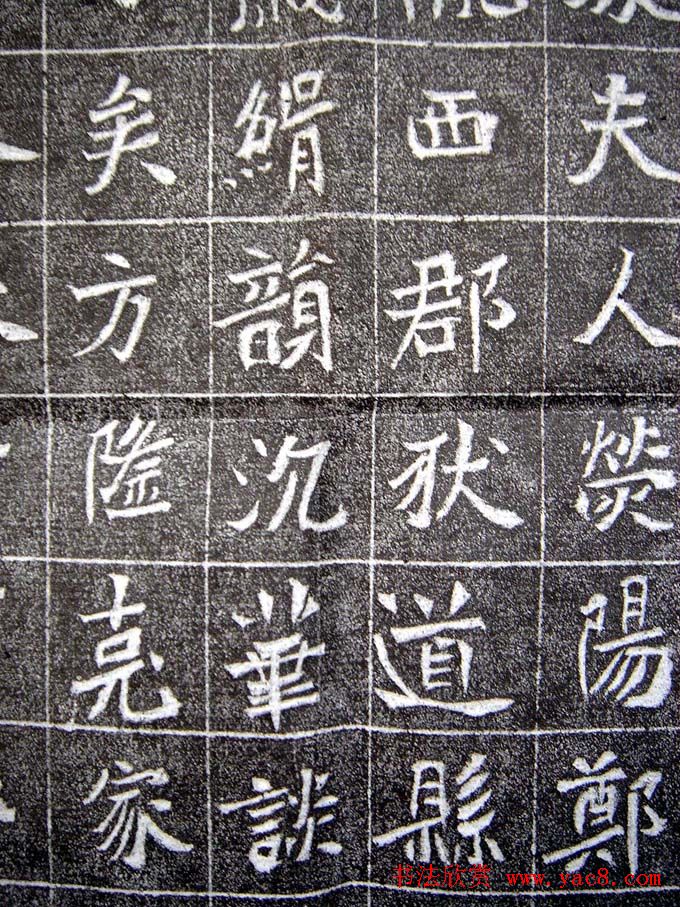 夫人熒陽鄭
西郡狄道縣
韻沉華談
矣方隆克家
书法欣赏 www.yac8.com